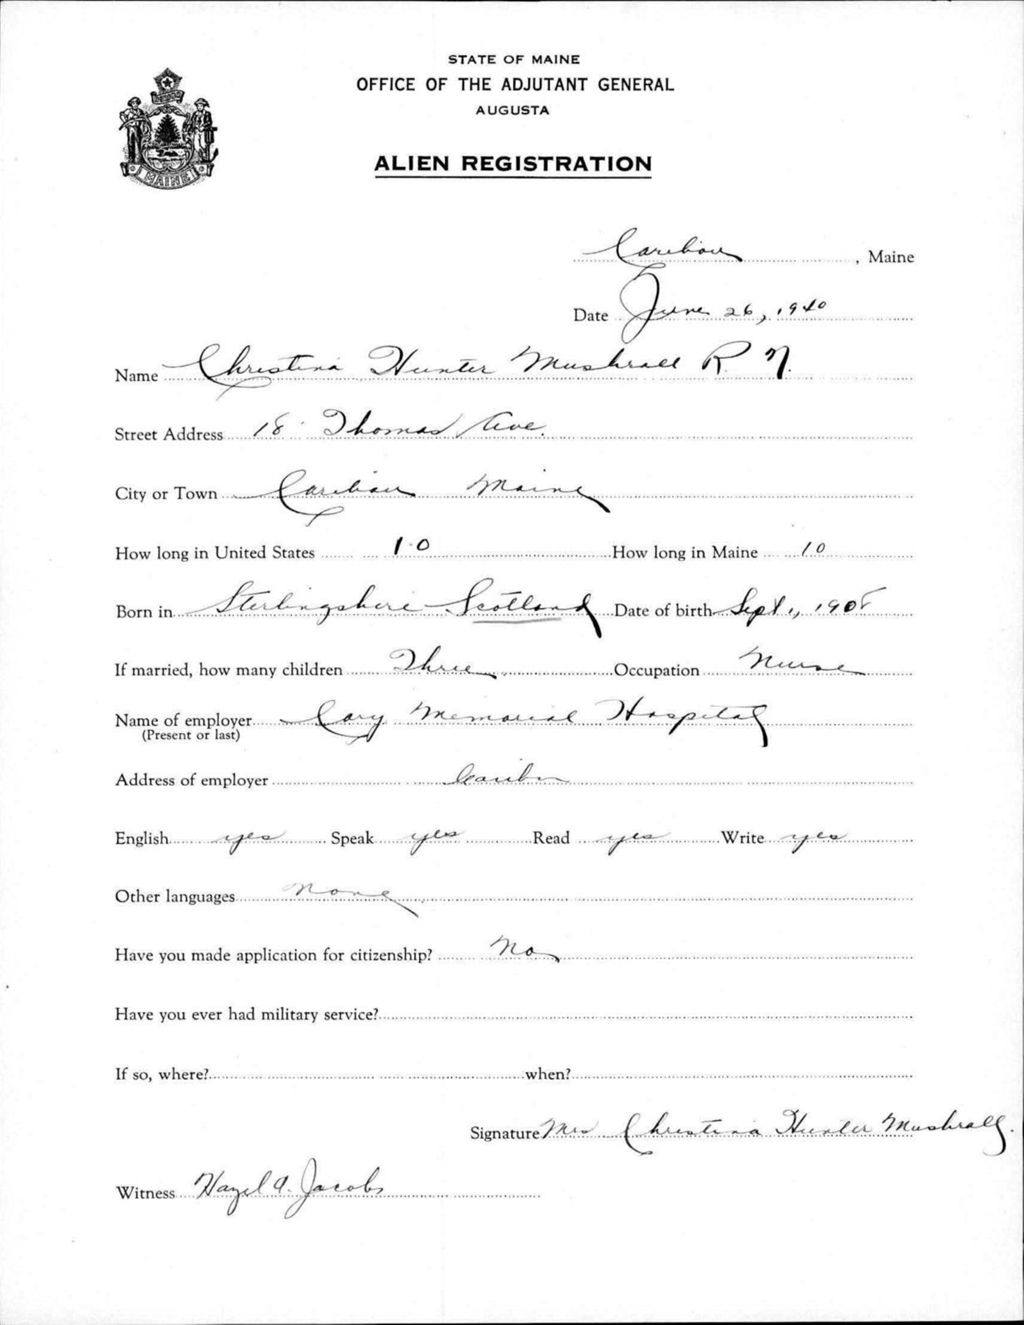 STATE OF MAINE
OFFICE OF THE ADJUTANT GENERAL
AUGUSTA
ALIEN REGISTRATION
MAINE
Caribou, Maine
Date June 26, 1940
Name Christina Hunter Mushrall R. N.
Street Address 18 Thomas Ave.
City or Town Caribou Maine
How long in United States 10 How long in Maine 10
Born in Sterlingshire Scotland Date of birth Sept 1, 1908
If married, how many children Three Occupation Nurse
Name of employer Cary Memorial Hospital
(Present or last)
Address of employer Caribou
English yes Speak yes Read yes Write yes
Other languages None
Have you made application for citizenship? No
Have you ever had military service?
If so, where? when?
Signature Mrs Christina Hunter Mushrall.
Witness Hazel A. Jacobs